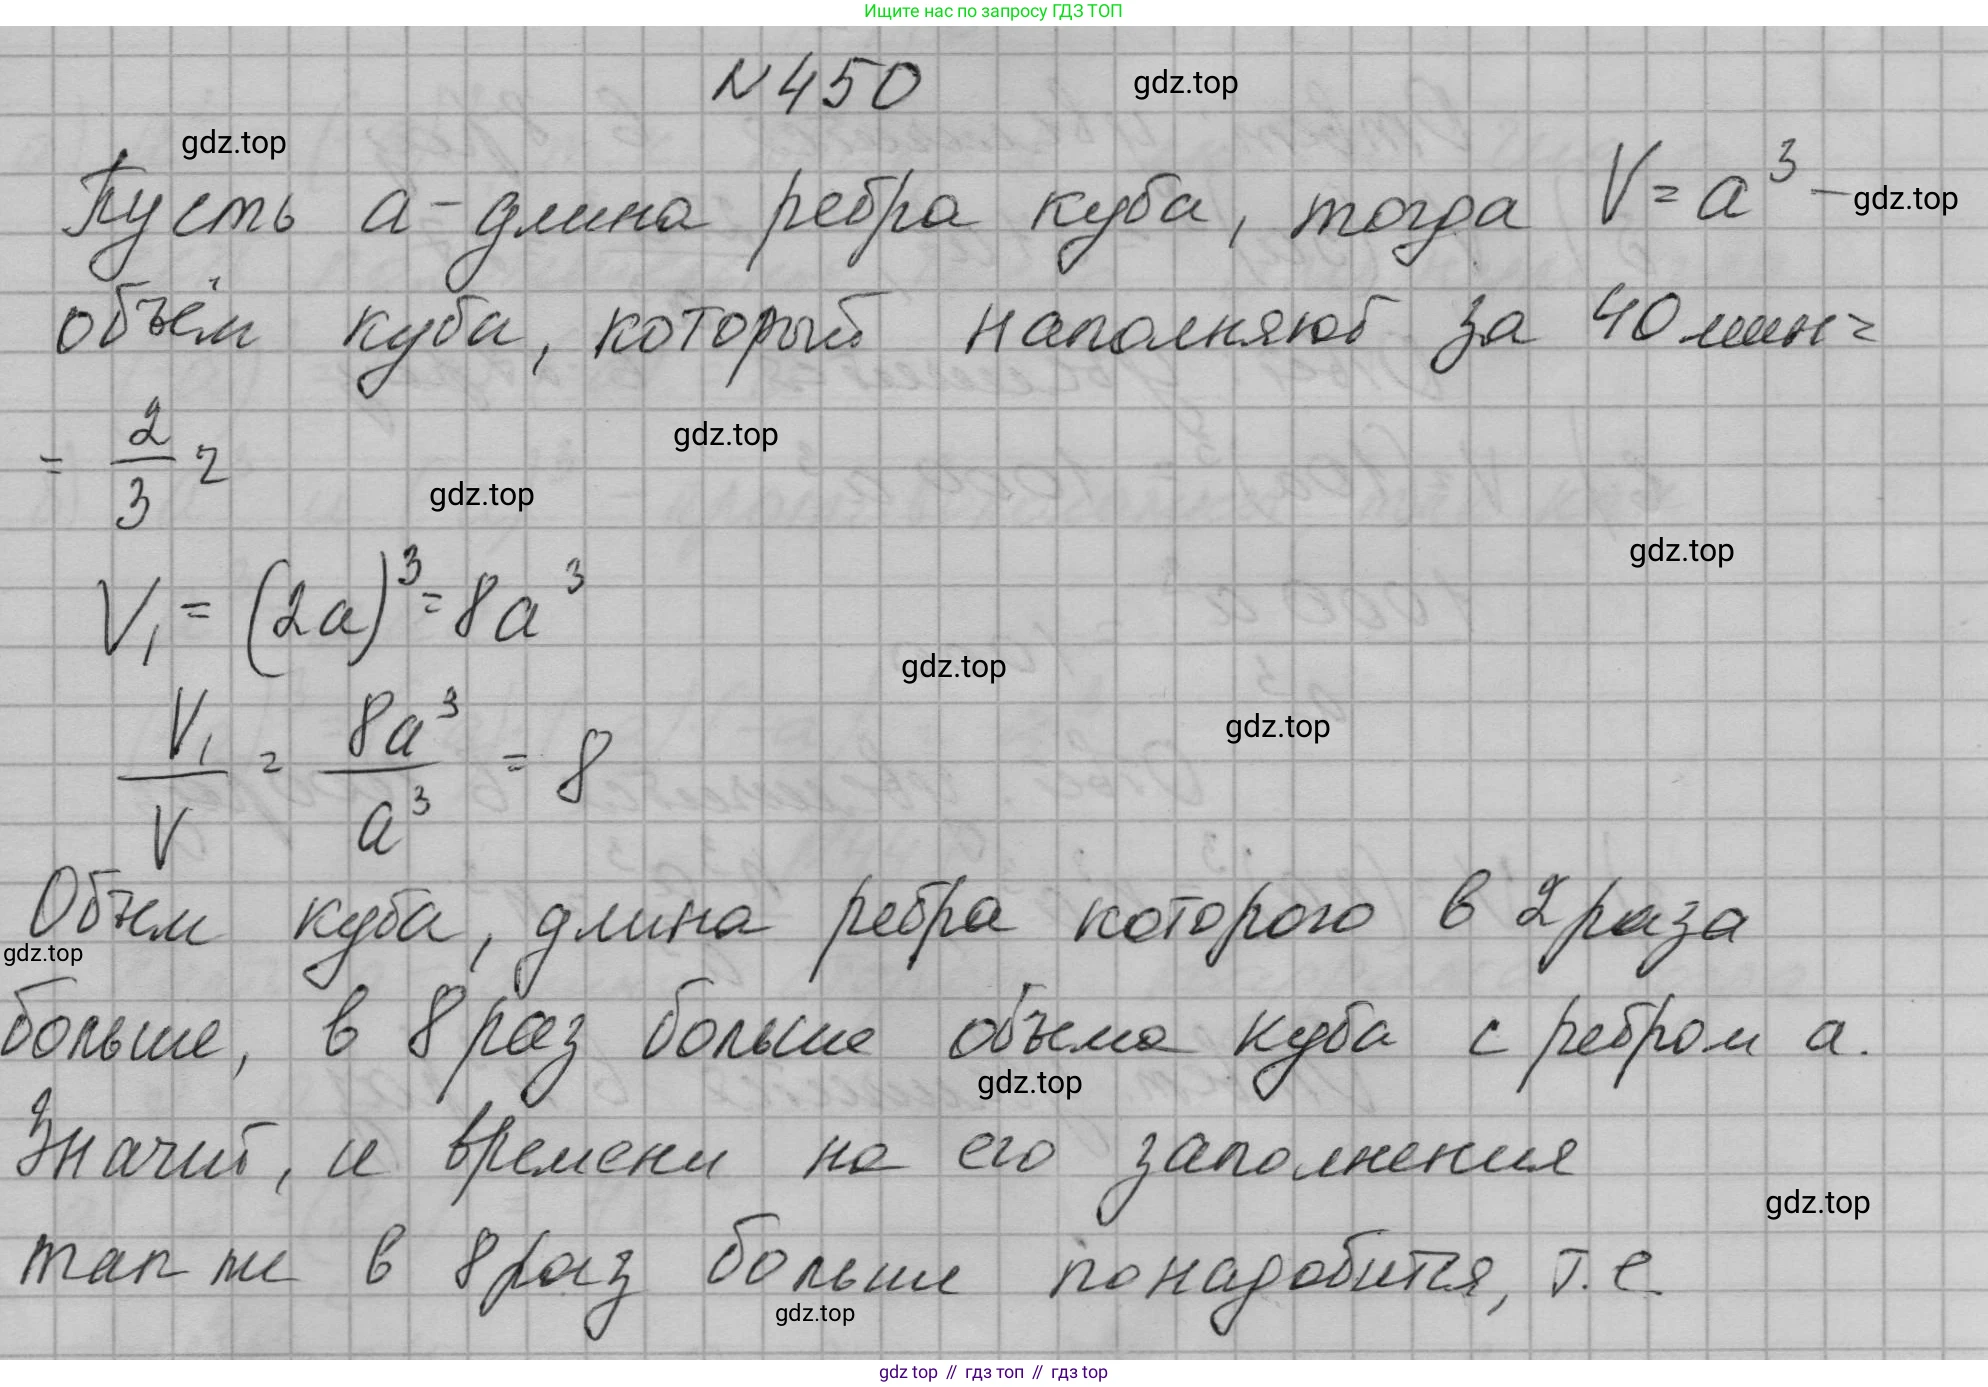 Ищите нас по запросу ГДЗ ТОП
№450
gdz.top
gdz.top
Пусть a - длина ребра куба, тогда V = a³ –
gdz.top
объём куба, который наполняют за 40 мин =
= 2/3 ч
gdz.top
gdz.top
gdz.top
V₁ = (2a)³ = 8a³
gdz.top
V₁/V = 8a³/a³ = 8
gdz.top
Объем куба, длина ребра которого в 2 раза
gdz.top
больше, в 8 раз больше объема куба с ребром a.
gdz.top
Значит, и времени на его заполнения
gdz.top
так же в 8 раз больше понадобится, т.е
gdz.top
gdz top // гдз топ // гдз top